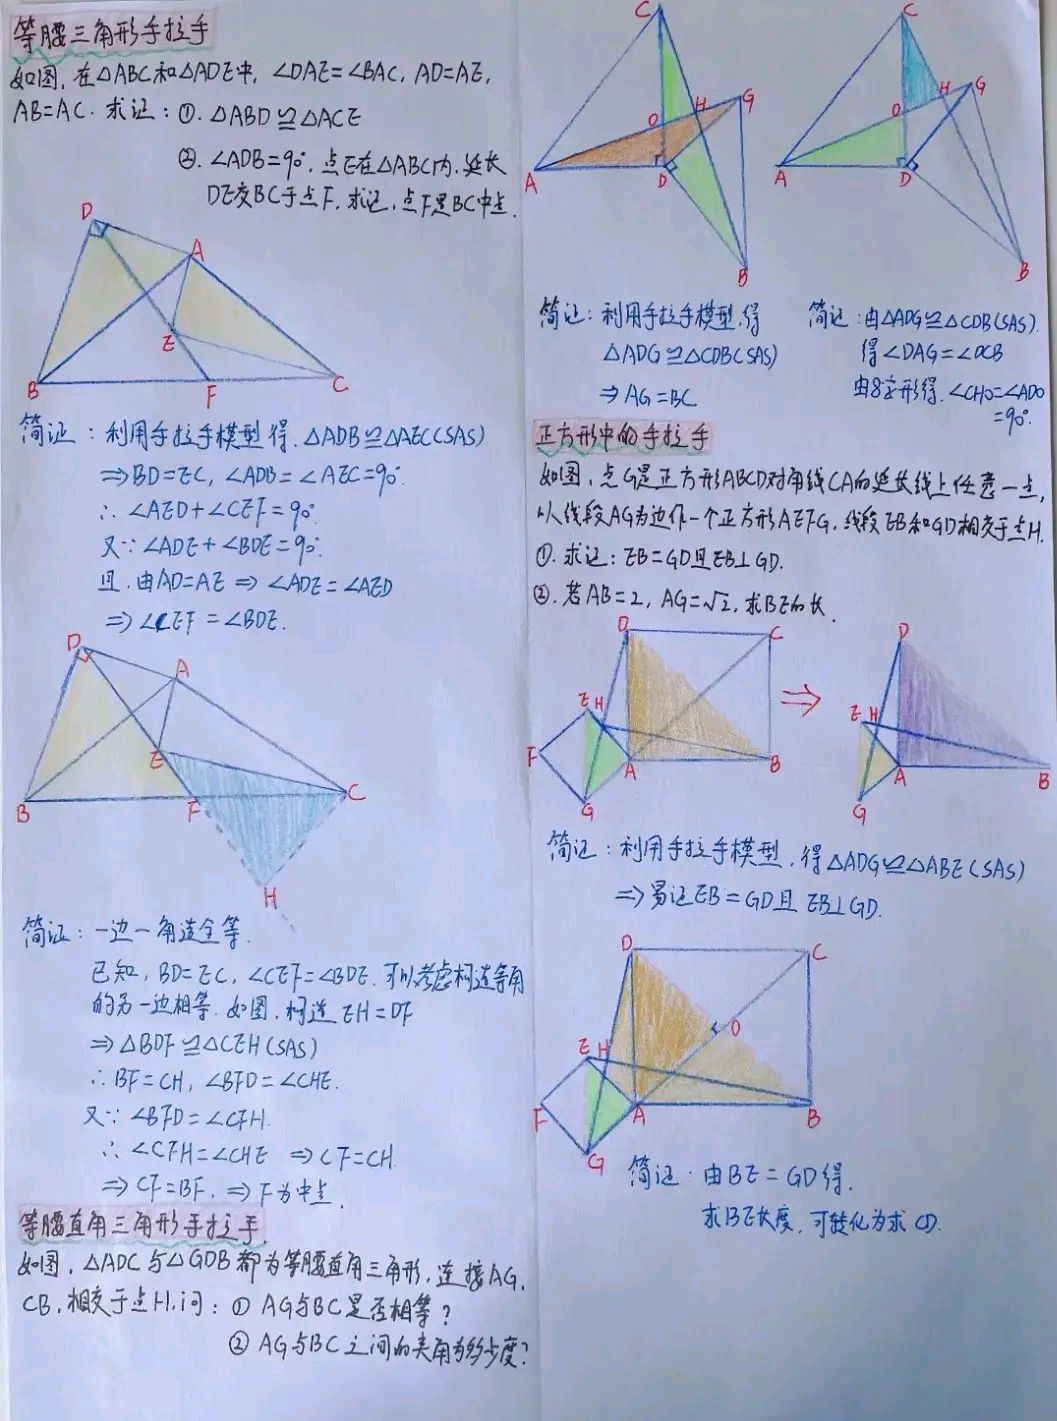 等腰三角形手拉手
如图,在△ABC和△ADE中,∠DAE=∠BAC,AD=AE,
AB=AC.求证:①.△ABD≌△ACE
②.∠ADB=90°,点E在△ABC内,延长
DE交BC于点F,求证,点F是BC中点.
D
A
E
B
F
C
简证:利用手拉手模型得.△ADB≌△AEC(SAS)
⇒BD=EC,∠ADB=∠AEC=90°
∴∠AED+∠CEF=90°
又∵∠ADE+∠BDE=90°
且.由AD=AE⇒∠ADE=∠AED
⇒∠CEF=∠BDE.
D
A
E
B
F
C
H
简证:一边一角造全等.
已知,BD=EC,∠CEF=∠BDE.可以考虑构造等角
的另一边相等.如图,构造EH=DF
⇒△BDF≌△CEH(SAS)
∴BF=CH,∠BFD=∠CHE.
又∵∠BFD=∠CFH.
∴∠CFH=∠CHE⇒CF=CH.
⇒CF=BF.⇒F为中点.
等腰直角三角形手拉手
如图,△ADC与△GDB都为等腰直角三角形,连接AG,
CB,相交于点H.问:①AG与BC是否相等?
②AG与BC之间的夹角为多少度?
C
O
H
G
A
D
B
C
O
H
G
A
D
B
简证:利用手拉手模型.得
△ADG≌△CDB(SAS)
⇒AG=BC
简证:由△ADG≌△CDB(SAS).
得∠DAG=∠DCB
由8字形得.∠CHO=∠ADO
=90°.
正方形中的手拉手
如图,点G是正方形ABCD对角线CA的延长线上任意一点,
以线段AG为边作一个正方形AEFG,线段EB和GD相交于点H.
①.求证:EB=GD且EB⊥GD.
②.若AB=2,AG=√2,求BE的长.
D
C
E
H
F
A
B
G
D
E
H
A
B
G
简证:利用手拉手模型.得△ADG≌△ABE(SAS)
⇒易证EB=GD且EB⊥GD.
D
C
O
E
H
F
A
B
G
简证:由BE=GD得.
求BE长度,可转化为求GD.